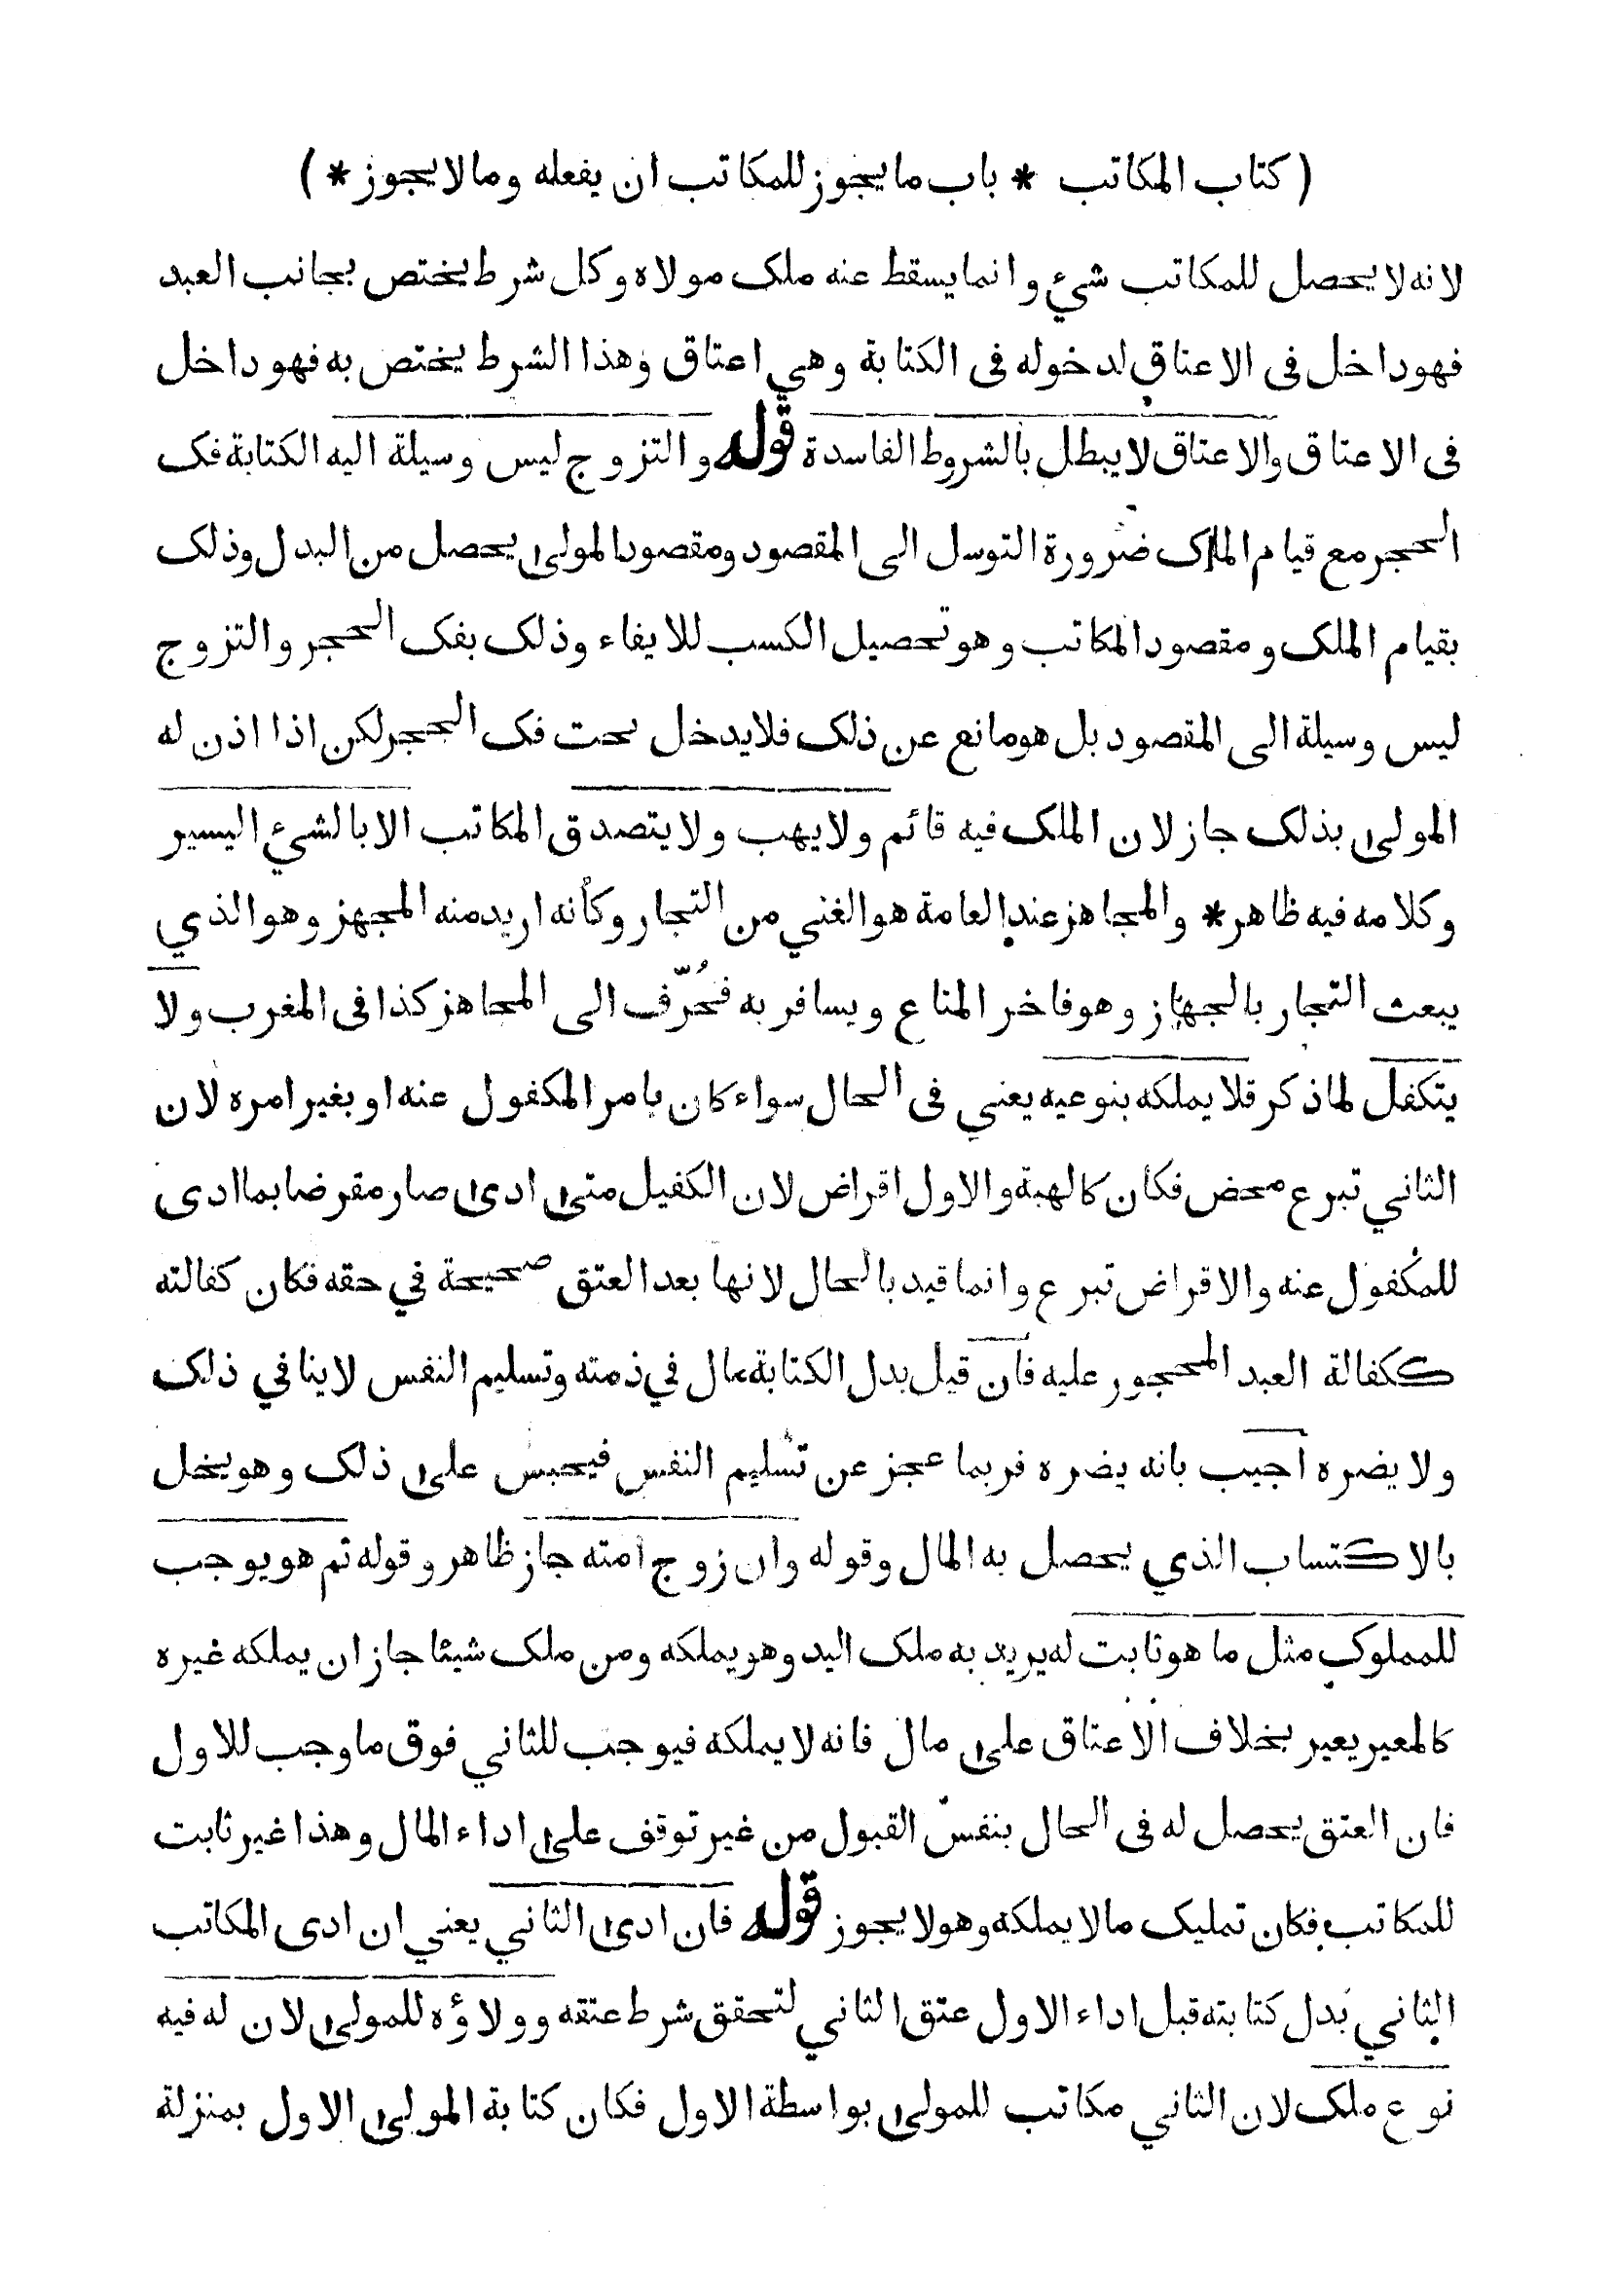 ( كتاب المكاتب * باب ما يجوز للمكاتب ان يفعله وما لا يجوز * )
لانه لا يحصل للمكاتب شيء وانما يسقط عنه ملك مولاه وكل شرط يختص بجانب العبد
فهو داخل فى الاعتاق لدخوله فى الكتابة وهي اعتاق وهذا الشرط يختص به فهو داخل
فى الاعتاق والاعتاق لا يبطل بالشروط الفاسدة قوله والتزوج ليس وسيلة اليه الكتابة فك
الحجر مع قيام الملك ضرورة التوسل الى المقصود ومقصود المولى يحصل من البدل وذلك
بقيام الملك ومقصود المكاتب وهو تحصيل الكسب للايفاء وذلك بفك الحجر والتزوج
ليس وسيلة الى المقصود بل هو مانع عن ذلك فلا يدخل تحت فك الحجر لكن اذا اذن له
المولى بذلك جاز لان الملك فيه قائم ولا يهب ولا يتصدق المكاتب الا بالشيء اليسير
وكلامه فيه ظاهر * والمجاهز عند العامة هو الغني من التجار وكأنه اريد منه المجهز وهو الذي
يبعث التجار بالجهاز وهو فاخر المتاع ويسافر به فحُرّف الى المجاهز كذا فى المغرب ولا
يتكفل لما ذكر فلا يملكه بنوعيه يعني فى الحال سواء كان بامر المكفول عنه او بغير امره لان
الثاني تبرع محض فكان كالهبة والاول اقراض لان الكفيل متى ادى صار مقرضا بما ادى
للمكفول عنه والاقراض تبرع وانما قيد بالحال لانها بعد العتق صحيحة في حقه فكان كفالته
ككفالة العبد المحجور عليه فان قيل بدل الكتابة مال في ذمته وتسليم النفس لا ينافي ذلك
ولا يضره اجيب بانه يضره فربما عجز عن تسليم النفس فيحبس على ذلك وهو يخل
بالاكتساب الذي يحصل به المال وقوله وان زوج امته جاز ظاهر وقوله ثم هو يوجب
للمملوك مثل ما هو ثابت له يريد به ملك اليد وهو يملكه ومن ملك شيئا جاز ان يملكه غيره
كالمعير يعير بخلاف الاعتاق على مال فانه لا يملكه فيوجب للثاني فوق ما وجب للاول
فان العتق يحصل له فى الحال بنفس القبول من غير توقف على اداء المال وهذا غير ثابت
للمكاتب فكان تمليك ما لا يملكه وهو لا يجوز قوله فان ادى الثاني يعني ان ادى المكاتب
الثاني بدل كتابته قبل اداء الاول عتق الثاني لتحقق شرط عتقه وولاؤه للمولى لان له فيه
نوع ملك لان الثاني مكاتب للمولى بواسطة الاول فكان كتابة المولى الاول بمنزلة